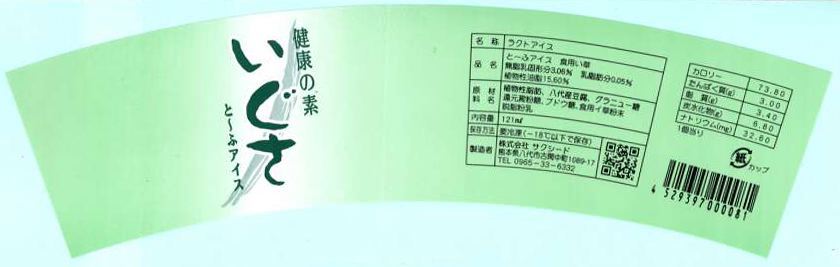 健康の素
いぐさ
と～ふアイス
名 称 ラクトアイス
品 名 と～ふアイス 食用い草
無脂乳固形分3.06% 乳脂肪分0.05%
植物性油脂15.60%
原材料名 植物性脂肪、八代産豆腐、グラニュー糖
還元澱粉糖、ブドウ糖、食用イ草粉末
脱脂粉乳
内容量 121㎖
保存方法 要冷凍(－18℃以下で保存)
製造者 株式会社 サクシード
熊本県八代市古閑中町1089-17
TEL 0965-33-6332
カロリー 73.80
たんぱく質(g) 3.00
脂 質(g) 3.40
炭水化物(g) 6.80
ナトリウム(mg) 32.60
1個当り
紙 カップ
4529397000081